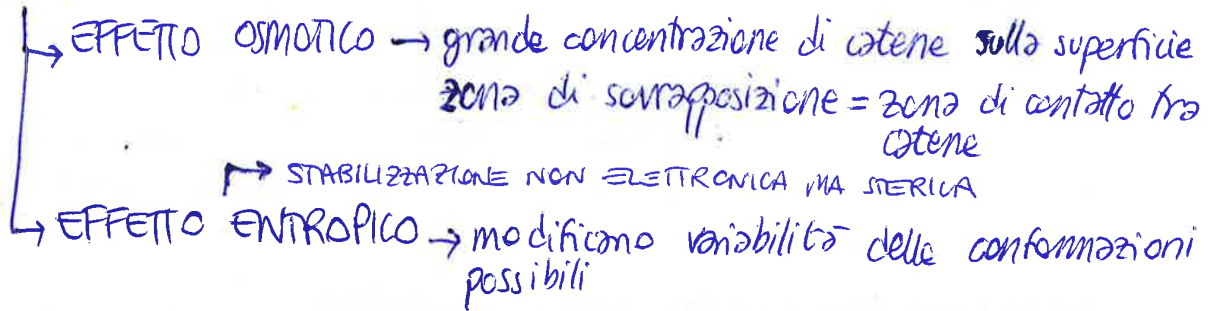 → EFFETTO OSMOTICO → grande concentrazione di catene sulla superficie
zona di sovrapposizione = zona di contatto tra
catene
→ STABILIZZAZIONE NON ELETTRONICA MA STERICA
→ EFFETTO ENTROPICO → modificano variabilità delle conformazioni
possibili